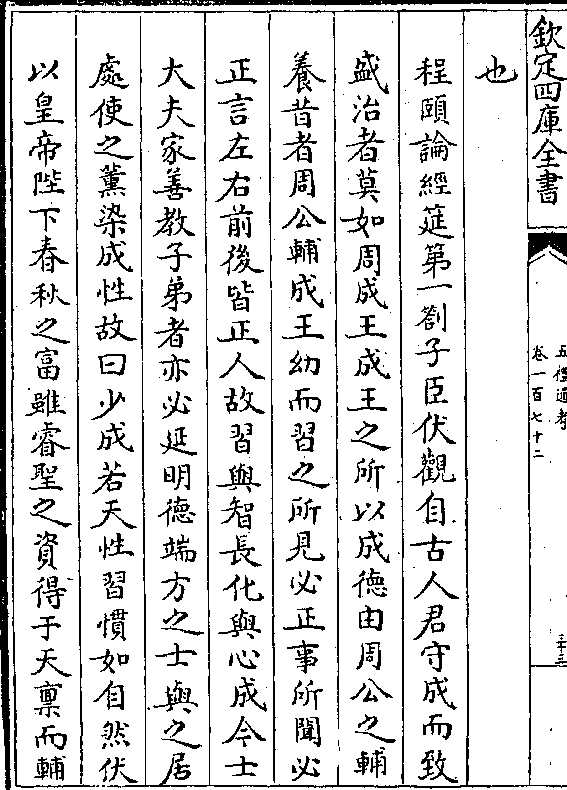 欽定四庫全書
五禮通考
卷一百七十二
三十三
也
程頤論經筵第一劄子臣伏觀自古人君守成而致
盛治者莫如周成王成王之所以成德由周公之輔
養昔者周公輔成王幼而習之所見必正事所聞必
正言左右前後皆正人故習與智長化與心成今士
大夫家善教子弟者亦必延明德端方之士與之居
處使之薰染成性故曰少成若天性習慣如自然伏
以皇帝陛下春秋之富雖睿聖之資得于天稟而輔